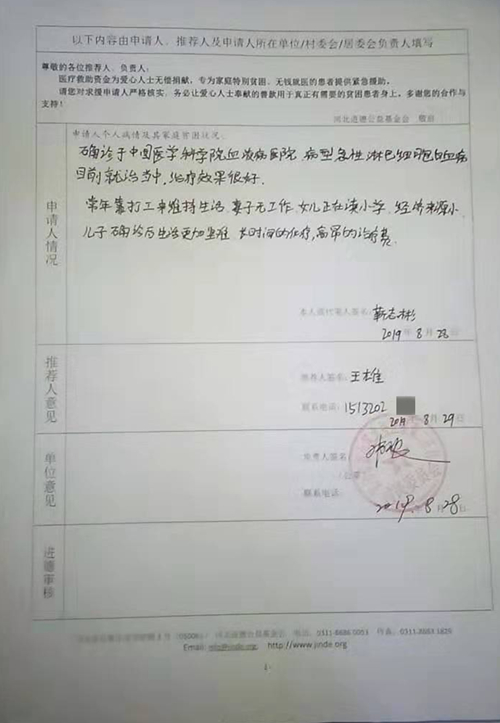 以下内容由申请人、推荐人及申请人所在单位/村委会/居委会负责人填写
尊敬的各位推荐人、负责人：
医疗救助资金为爱心人士无偿捐献，专为家庭特别贫困、无钱就医的患者提供紧急援助。
请您对求援申请人严格核实，务必让爱心人士奉献的善款用于真正有需要的贫困患者身上。多谢您的合作与
支持！
河北进德公益基金会 敬启
申请人情况
申请人个人病情及其家庭贫困状况：
确诊于中国医学科学院血液病医院 病型急性淋巴细胞白血病
目前就治当中，治疗效果很好．
常年靠打工来维持生活 妻子无工作，女儿正在读小学，经济来源小
儿子确诊后生活更加坚难 长时间的化疗，高昂的治疗费．
本人或代笔人签名：
2019 8月28
推荐人意见
推荐人签名：王雄
联系电话：1513202
2019 8月29日
单位意见
负责人签名：
（公章）
联系电话：
2019年8月28日
进德审核
河北进德公益基金会 电话：0311-8686 0053
Email: info@jinde.org http://www.jinde.org